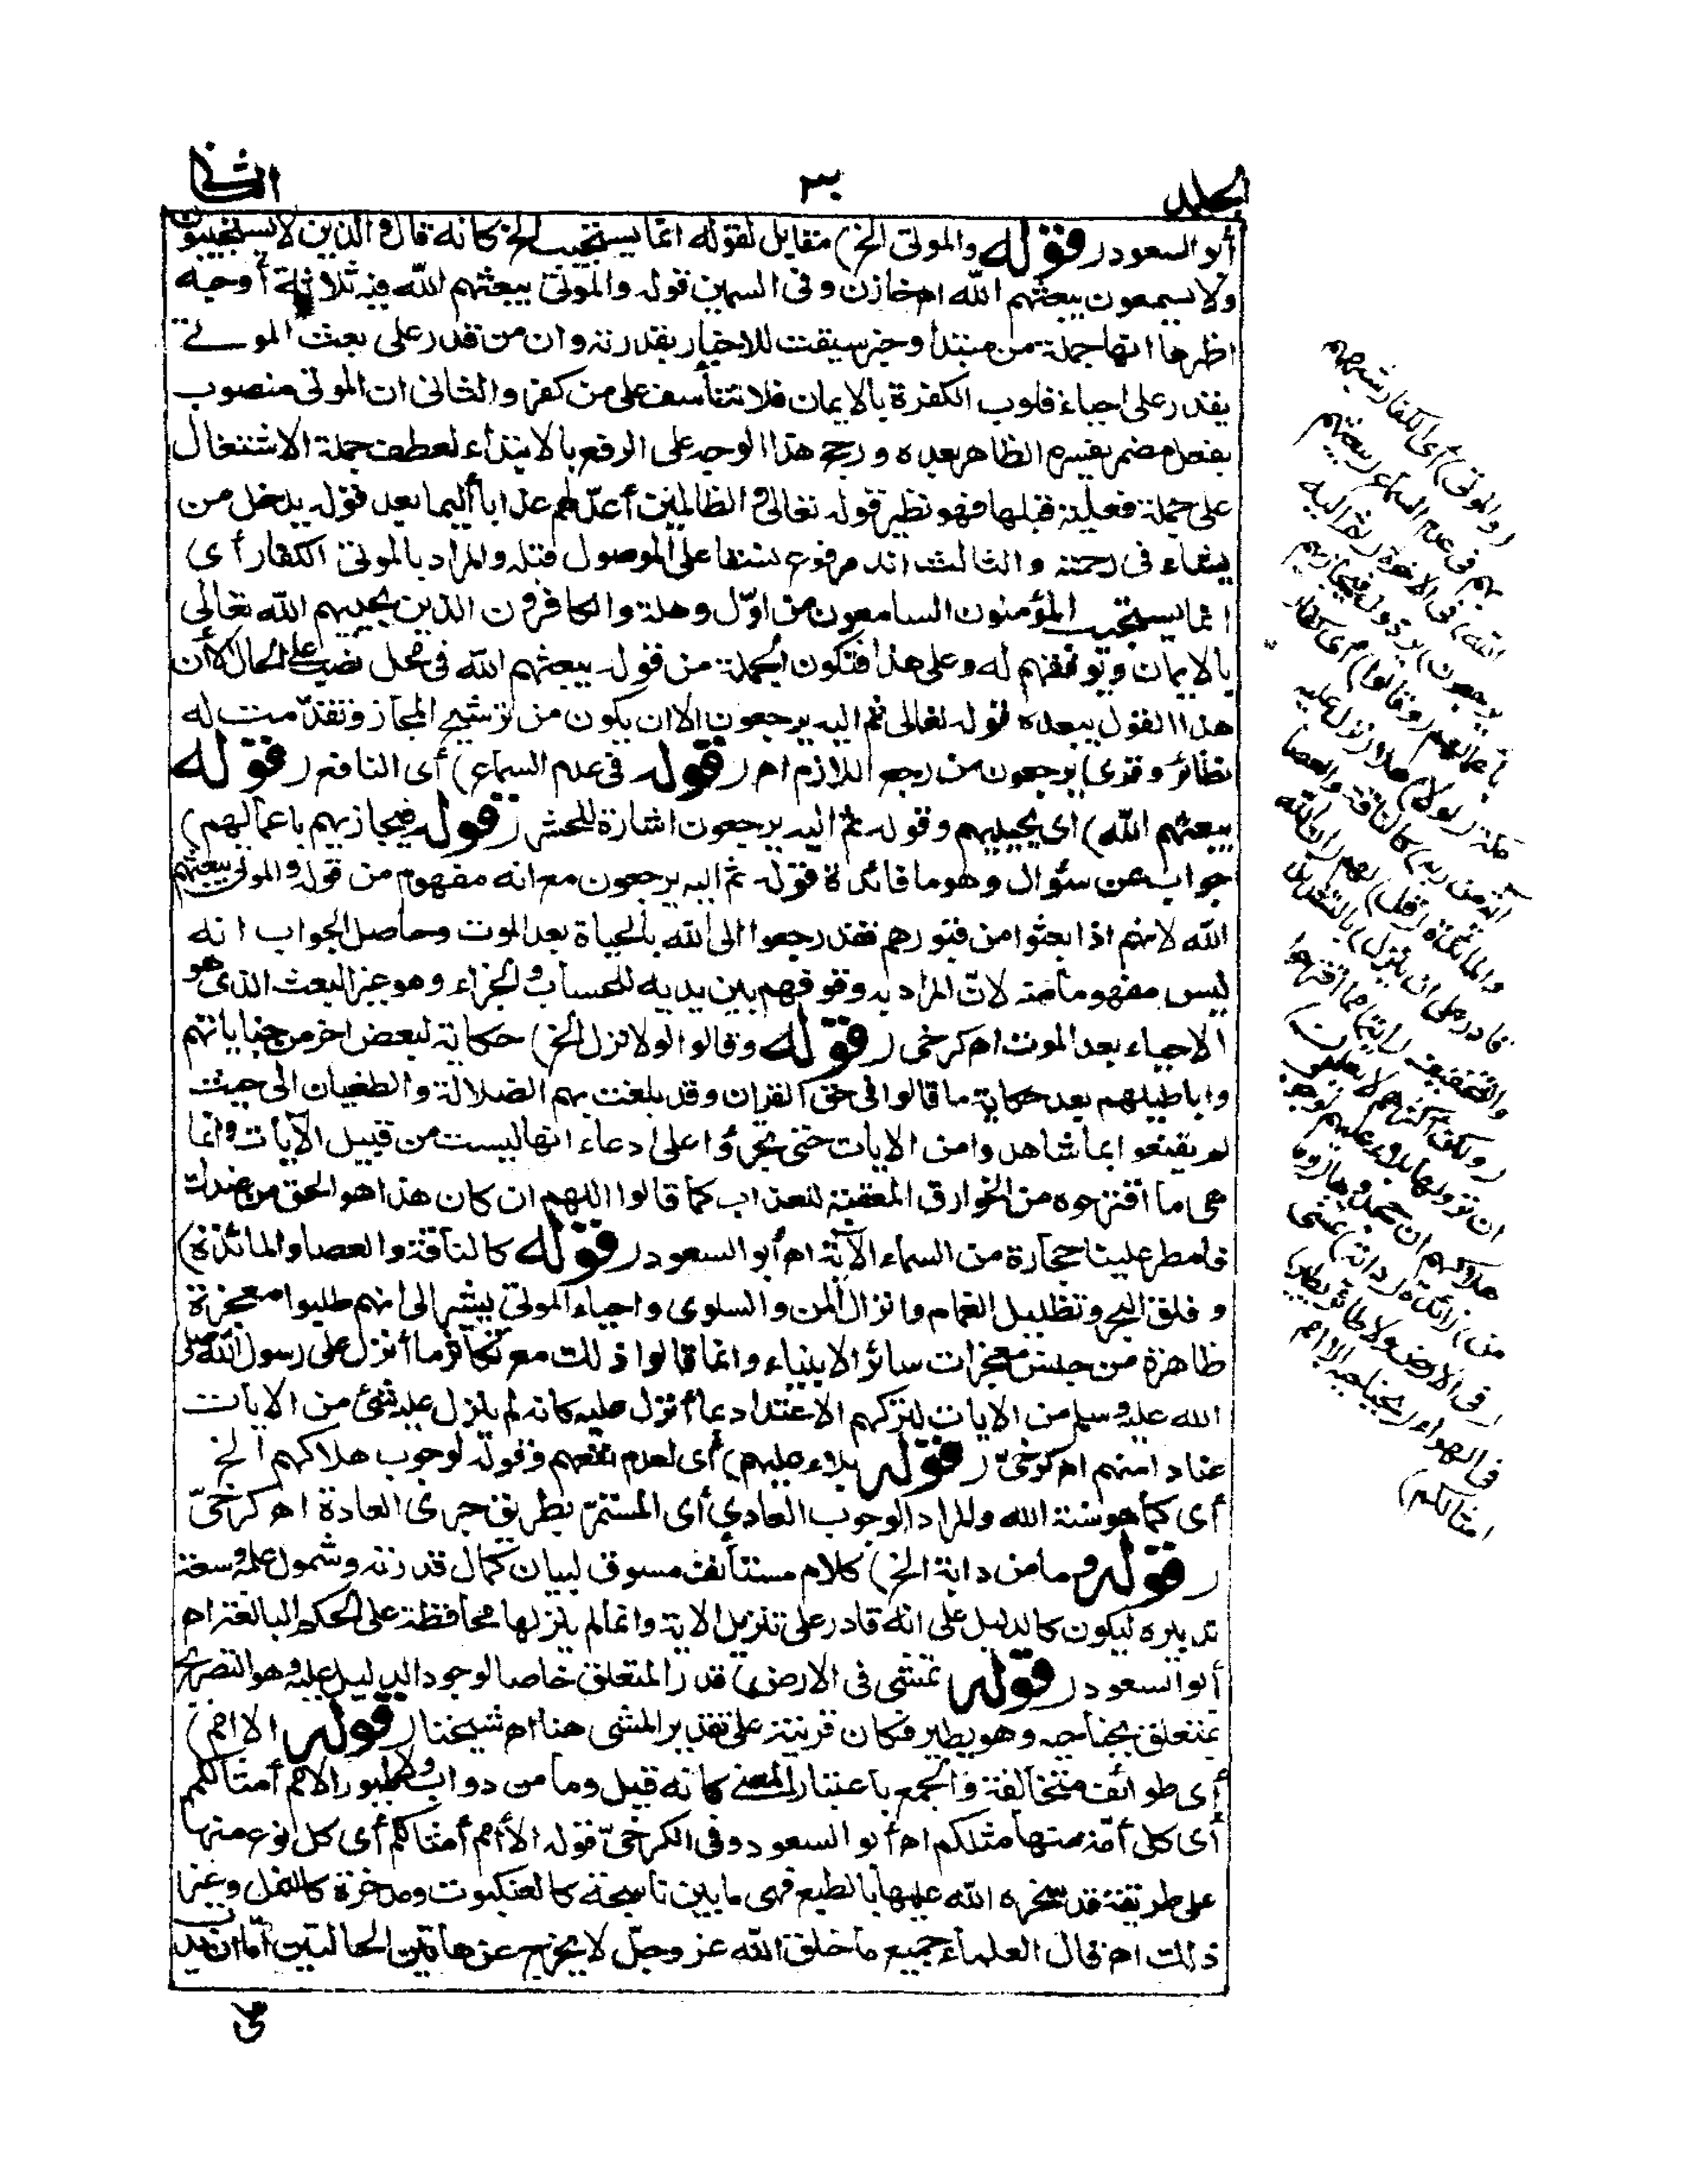 الجلد
٣٠
الثانى
أبو السعود (قوله والموتى الخ) مقابل لقوله انما يستجيب الخ كانه قال والذين لا يستجيبون
ولا يسمعون يبعثهم الله اه خازن وفى السمين قوله والموتى يبعثهم الله فيه ثلاثة أوجه
اظهرها انها جملة من مبتدأ وخبر سيقت للاخبار بقدرته وان من قدر على بعث الموتى
يقدر على احياء قلوب الكفرة بالايمان فلا تتأسف على من كفر والثانى ان الموتى منصوب
بفعل مضمر يفسره الظاهر بعده ورجح هذا الوجه على الرفع بالابتداء لعطف جملة الاشتغال
على جملة فعلية قبلها فهو نظير قوله تعالى والظالمين أعد لهم عذابا أليما بعد قوله يدخل من
يشاء فى رحمته والثالث انه مرفوع نسقا على الموصول قبله والمراد بالموتى الكفار أى
انما يستجيب المؤمنون السامعون من اوّل وهلة والكافرون الذين يجيبهم الله تعالى
بالايمان ويوفقهم له وعلى هذا فتكون الجملة من قوله يبعثهم الله فى محل نصب على الحال الا أن
هذا القول يبعده قوله تعالى ثم اليه يرجعون الا ان يكون من ترشيح المجاز وتقدّمت له
نظائر وقرئ يرجعون من رجع اللازم اه (قوله فى عدم السماع) أى النافع (قوله
يبعثهم الله) اى يحييهم وقوله ثم اليه يرجعون اشارة للحشر (قوله فيجازيهم باعمالهم)
جواب عن سؤال وهو ما فائدة قوله ثم اليه يرجعون مع انه مفهوم من قوله والموتى يبعثهم
الله لانهم اذا بعثوا من قبورهم فقد رجعوا الى الله بالحياة بعد الموت وحاصل الجواب انه
ليس مفهوما منه لانّ المراد به وقوفهم بين يديه للحساب والجزاء وهو غير البعث الذى هو
الاحياء بعد الموت اه كرخى (قوله وقالوا لولا نزل الخ) حكاية لبعض اخر من جناياتهم
واباطيلهم بعد حكاية ما قالوا فى حق القران وقد بلغت بهم الضلالة والطغيان الى حيث
لم يقنعوا بما شاهدوا من الايات حتى تجرؤا على ادعاء انها ليست من قبيل الآيات وانما
هى ما اقترحوه من الخوارق المعقبة للعذاب كما قالوا اللهم ان كان هذا هو الحق من عندك
فامطر علينا حجارة من السماء الآية اه أبو السعود (قوله كالناقة والعصا والمائدة)
وفلق البحر وتظليل الغمام وانزال المن والسلوى واحياء الموتى يشير الى انهم طلبوا معجزة
ظاهرة من جنس معجزات سائر الانبياء وانما قالوا ذلك مع تكاثر ما أنزل على رسول الله صلى
الله عليه وسلم من الايات لتركهم الاعتداد بما أنزل عليه كانه لم ينزل عليه شئ من الايات
عنادا منهم اه كرخىّ (قوله بلاء عليهم) أى لعدم نفعهم وقوله لوجوب هلاكهم الخ
أى كما هو سنة الله والمراد الوجوب العادي أى المستمرّ بطريق جرى العادة اه كرخىّ
(قوله وما من دابة الخ) كلام مستأنف مسوق لبيان كمال قدرته وشمول علمه وسعة
تدبيره ليكون كالدليل على انه قادر على تنزيل الاية وانما لم ينزلها محافظة على الحكم البالغة اه
أبو السعود (قوله تمشى فى الارض) قدر المتعلق خاصا لوجود الدليل عليه وهو التصريح
بمتعلق بجناحيه وهو يطير فكان قرينة على تقدير المشى هنا اه شيخنا (قوله الا امم)
أى طوائف متخالفة والجمع باعتبار المعنى كانه قيل وما من دواب ولا طيور الا امم أمثالكم
أى كل أمّة منها مثلكم اه أبو السعود وفى الكرخىّ قوله الا أمم أمثالكم أى كل نوع منها
على طريقة قد سخره الله عليها بالطبع فهى ما بين ناسجة كالعنكبوت ومدخرة كالنمل وغير
ذلك اه قال العلماء جميع ما خلق الله عز وجلّ لا يخرج عن هاتين الحالتين امّا ان يدب
(والموتى) أى الكفار شبههم
بهم فى عدم السماع (يبعثهم
الله) فى الاخرة (ثم اليه
يرجعون) يردون فيجازيهم
باعمالهم (وقالوا) أى كفار
مكة (لولا) هلا (نزل عليه
آية من ربه) كالناقة والعصا
والمائدة (قل) لهم (ان الله
قادر على ان ينزل) بالتشديد
والتخفيف (آية) مما اقترحوا
(ولكن أكثرهم لا يعلمون)
ان نزولها بلاء عليهم لوجوب
هلاكهم ان جحدوها (وما
من) زائدة (دابة) تمشى
(فى الارض ولا طائر يطير)
فى الهواء (بجناحيه الا امم
امثالكم)